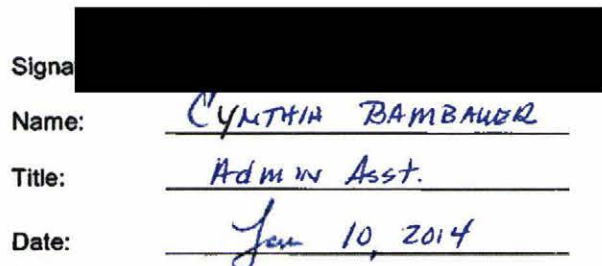 Signa
Name: CYNTHIA BAMBAUER
Title: Admin Asst.
Date: Jan 10, 2014